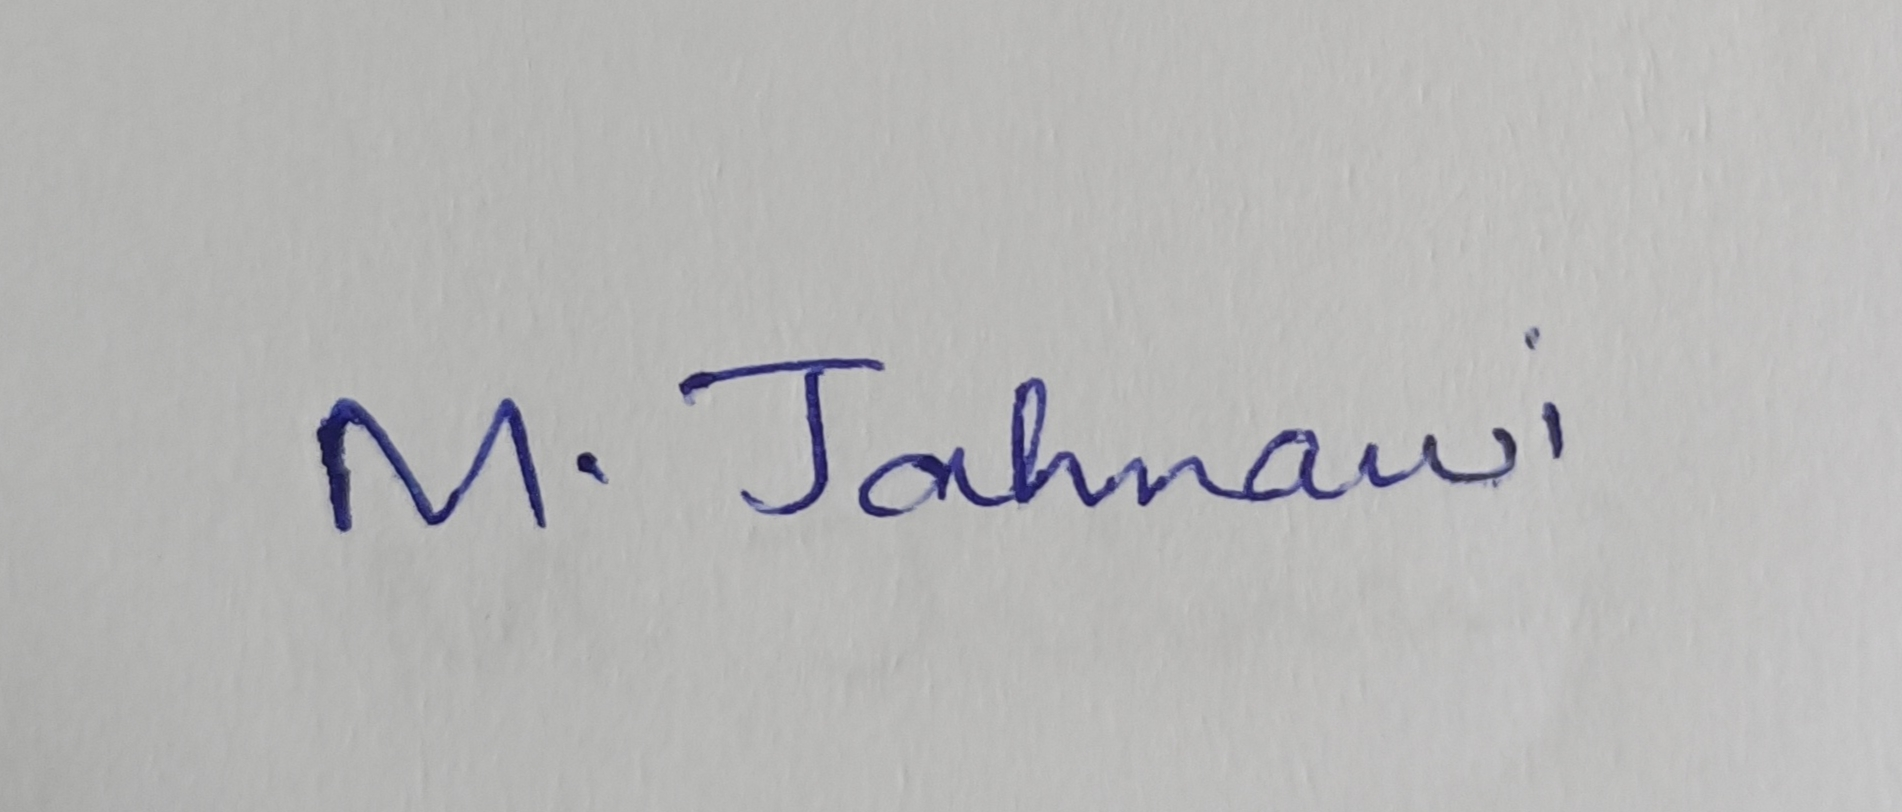 M. Jahnawi